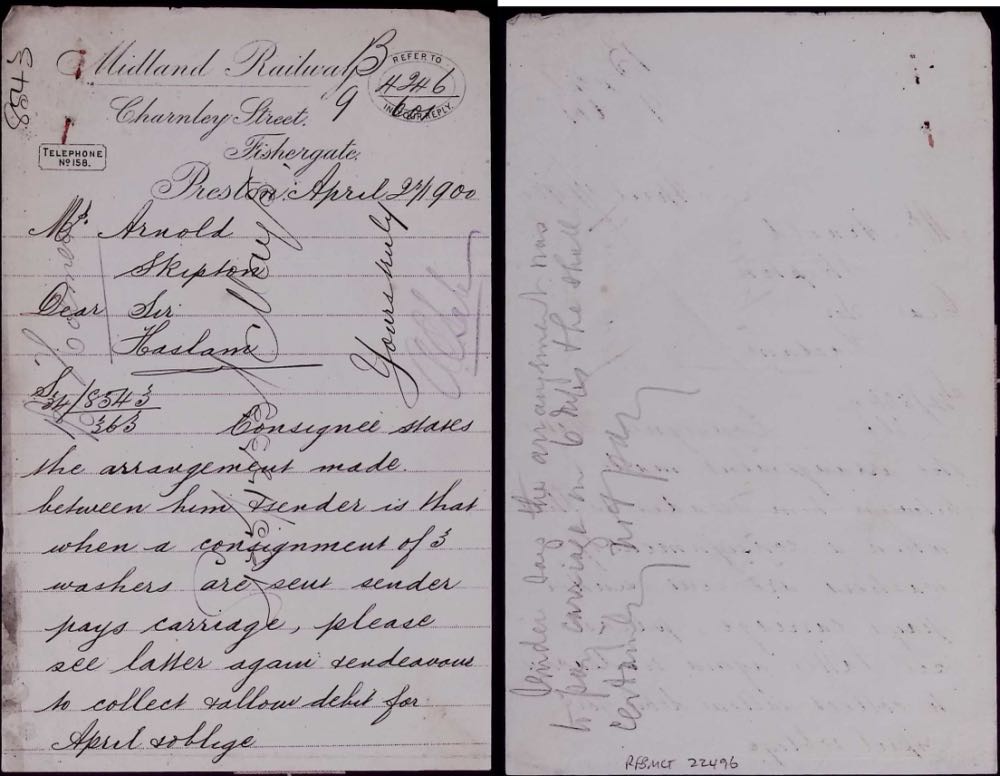 8543
Midland Railway
B
9
REFER TO
4246
IN YOUR REPLY
Charnley Street.
Fishergate.
TELEPHONE
Nº 158.
Preston. April 24 1900
Mr. Arnold
Skipton
Dear Sir
Haslam
Sr 24/8543
363
Consignee states
the arrangement made
between him & sender is that
when a consignment of 3
washers are sent sender
pays carriage, please
see latter again & endeavour
to collect & allow debit for
April & oblige
Yours truly
Sender says the arrangement was
to pay carriage on 6 only & he shall
certainly not pay
RFB.MCT 22496